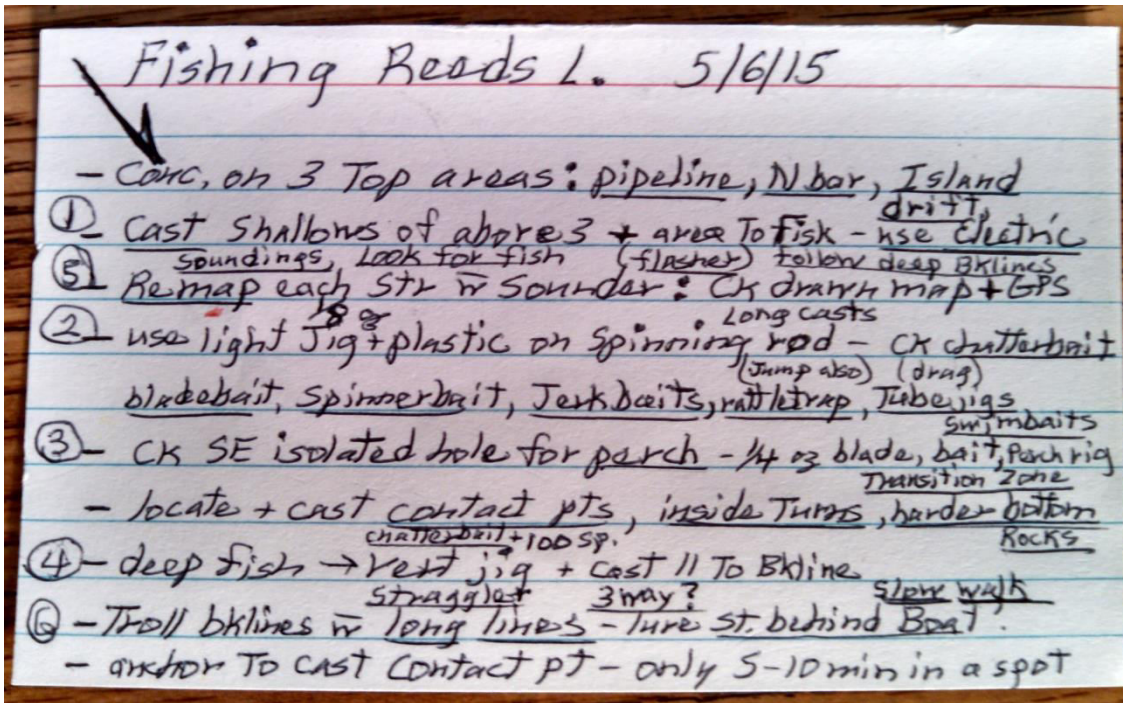 Fishing Reads L. 5/6/15
- Conc. on 3 Top areas: pipeline, N bar, Island
drift,
① - Cast Shallows of above 3 + area To fish - use Electric
soundings, Look for fish (flasher) follow deep Bklines
⑤ - Remap each Str w̄ Sounder: CK drawn map + GPS
1/8 oz Long casts
② - use light Jig + plastic on Spinning rod - CK chatterbait
(Jump also) (drag)
bladebait, Spinnerbait, Jerkbaits, rattletrap, Tubejigs
Swimbaits
③ - CK SE isolated hole for perch - 1/4 oz blade, bait, Perch rig
Transition Zone
- locate + cast contact pts, inside Turns, harder bottom
chatterbait + 100 sp. Rocks
④ - deep fish → Vert jig + cast // To Bkline
straggler 3way? Slow walk
⑥ - Troll bklines w̄ long lines - lure st. behind Boat.
- anchor To cast Contact pt - only 5-10 min in a spot